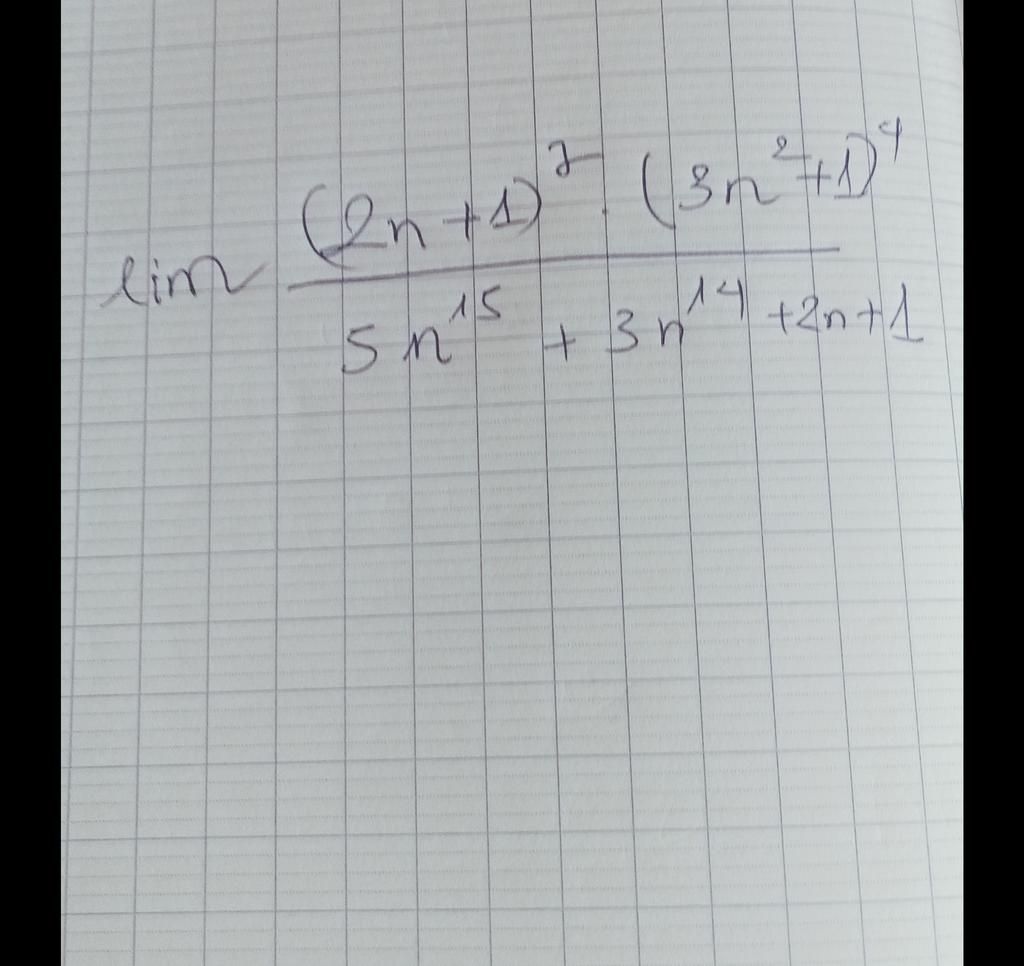 lim (2n+1)^7 . (3n^2+1)^4 / 5n^15 + 3n^14 + 2n + 1